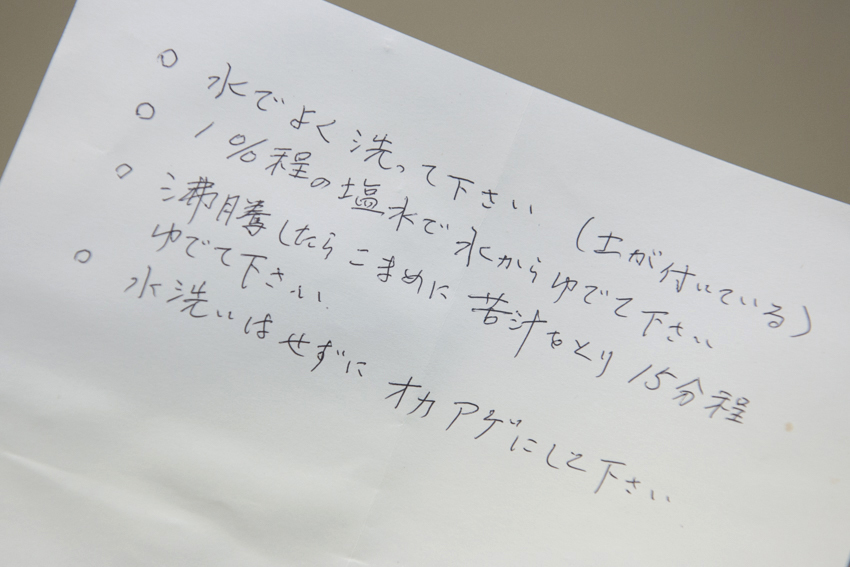 ○ 水でよく洗って下さい (土が付いている)
○ 1%程の塩水で水からゆでて下さい
○ 沸騰したらこまめに苦汁をとり15分程
ゆでて下さい.
○ 水洗いはせずにオカアゲにして下さい